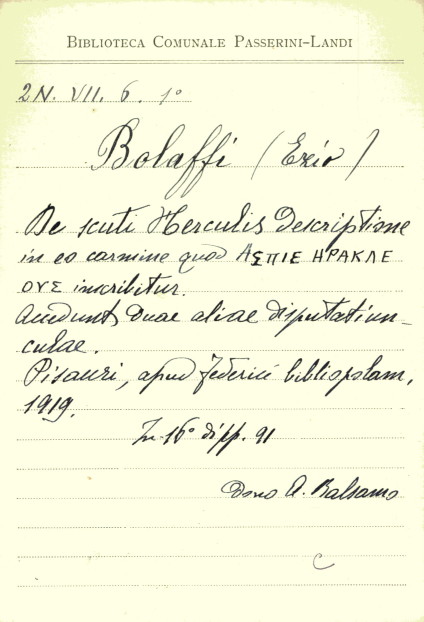 BIBLIOTECA COMUNALE PASSERINI-LANDI
2N. VII. 6. 1°
Bolaffi (Ezio)
De scuti Herculis descriptione
in eo carmine quod ΑΣΠΙΕ ΗΡΑΚΛΕ
ΟΥΣ inscribitur.
Accedunt duae aliae disputatiun-
culae.
Pisauri, apud Federici bibliopolam,
1919.
In 16° di pp. 91
Dono A. Balsamo
C